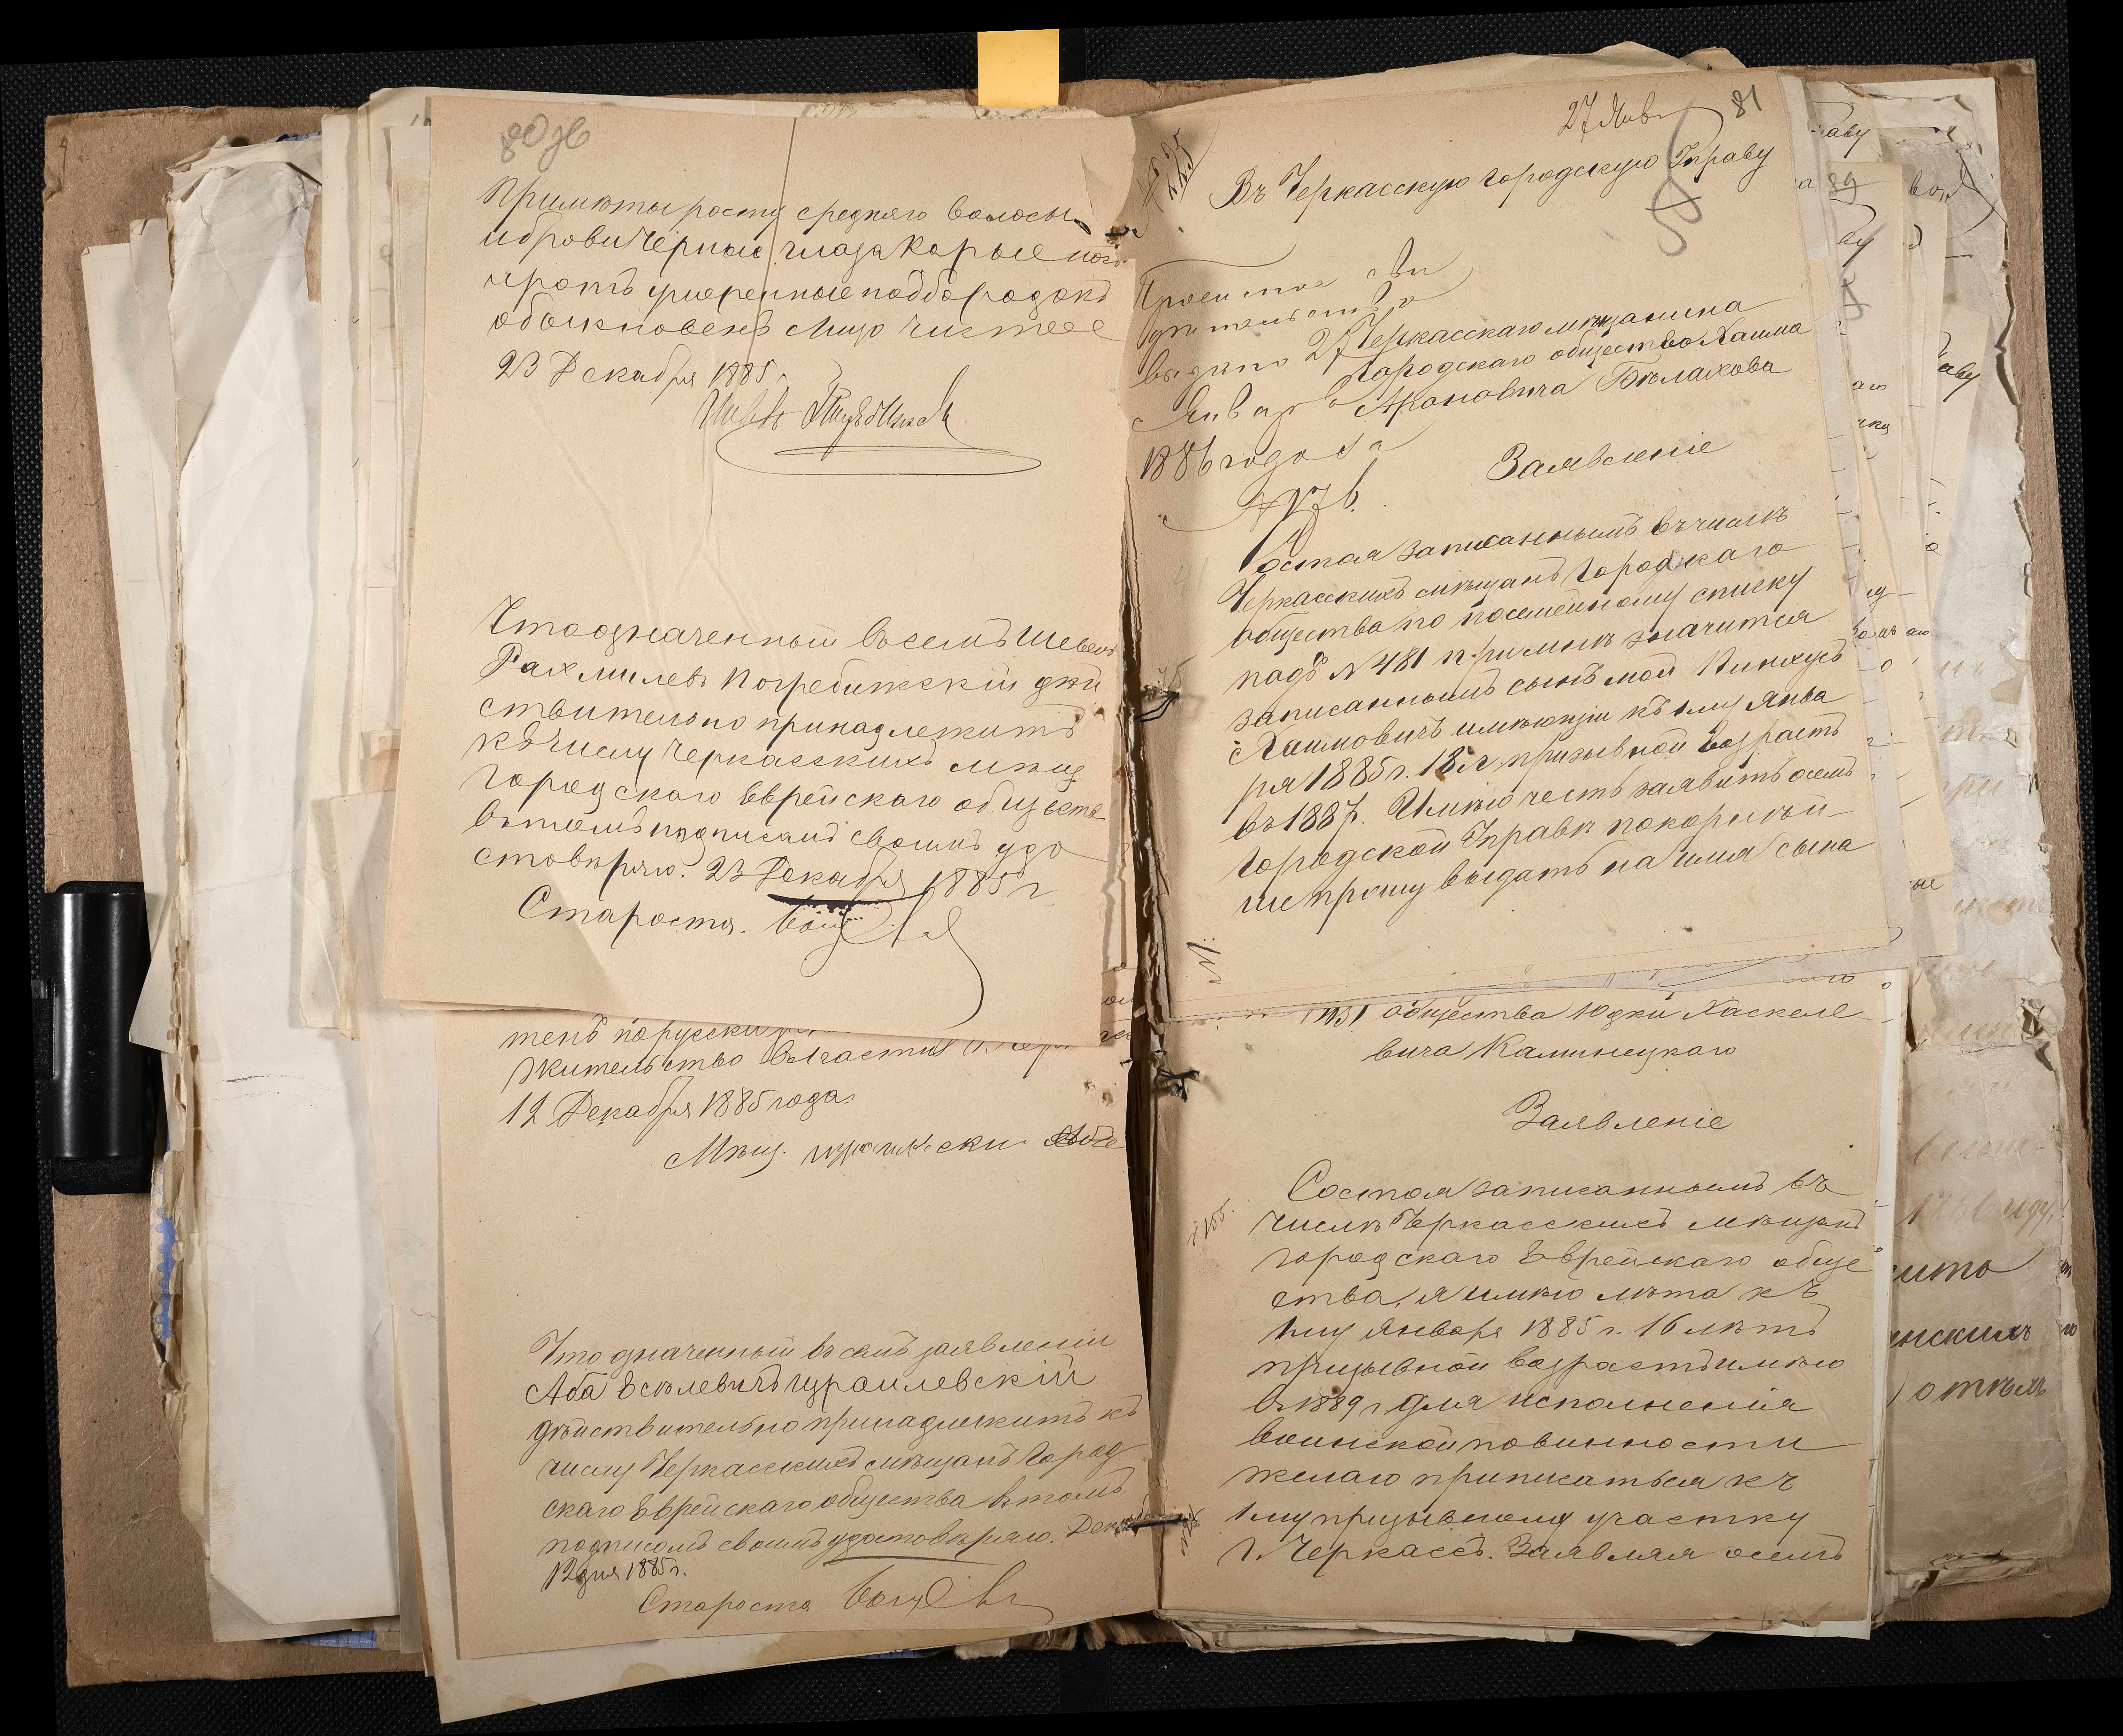 80 зв
Приметы росту средняго волосы
и брови черные глаза карые носъ
и ротъ умеренные подбородокъ
обыкновенъ лицо чистое
23 Декабря 1885 г.
Что означенный въ семъ Шевель
Рахмилевъ Погребижскій дѣй
ствительно принадлежитъ
къ числу Черкасскихъ мѣщ
городскаго Еврейскаго общества
въ томъ подписаніемъ своимъ удо
стовѣряю. 23 Декабря 1885 г
Староста.
тенъ по русски
жительство въ
12 Декабря 1885 года
Мѣщ.
Что означенный въ семъ заявленіи
Аба Еселевичъ Израилевскій
дѣйствительно принадлежитъ къ
числу Черкасскихъ мѣщанъ Город
скаго Еврейскаго общества въ томъ
подписомъ своимъ удостовѣряю. Декаб
12 дня 1885 г.
Староста
27 Янв 81
№ 225
Въ Черкасскую городскую Управу
Просимое сви
дѣтельство
выдано 27
Января
1886 года за
№ 176.
Черкасскаго мѣщанина
Городскаго общества Хаима
Ароновича Бѣлахова
Заявленіе
Состоя записаннымъ въ числѣ
Черкасскихъ мѣщанъ Городскаго
общества по посемейному списку
подъ № 481 при мнѣ значится
записаннымъ сынъ мой Пинхусъ
Хаимовичъ имѣющій къ 1му Янва
ря 1885 г. 18 л призывной возрастъ
въ 1887. Имѣю честь заявить о семъ
Городской Управѣ покорнѣй-
ше прошу выдать на имя сына
общества Юдки Хаскеле
вича Каминецкаго
Заявленіе
Состоя записаннымъ въ
числѣ Черкасскихъ мѣщанъ
городскаго Еврейскаго обще
ства, я имѣю лѣта къ
1му Января 1885 г. 16 лѣтъ
призывной возрастъ имѣю
въ 1889 г для исполненія
воинской повинности
желаю приписаться къ
1му призывному участку
г. Черкассъ. Заявляя о семъ